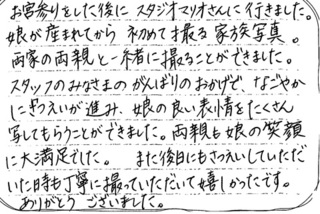 お宮参りをした後に スタジオマリオさんに行きました。
娘が産まれてから 初めて撮る家族写真。
両家の両親と一緒に撮ることができました。
スタッフのみなさまのがんばりのおかげで、なごやか
にさつえいが進み、娘の良い表情をたくさん
写してもらうことができました。両親も娘の笑顔
に大満足でした。 また後日にもさつえいしていただ
いた時も丁寧に撮っていただいて嬉しかったです。
ありがとう ございました。